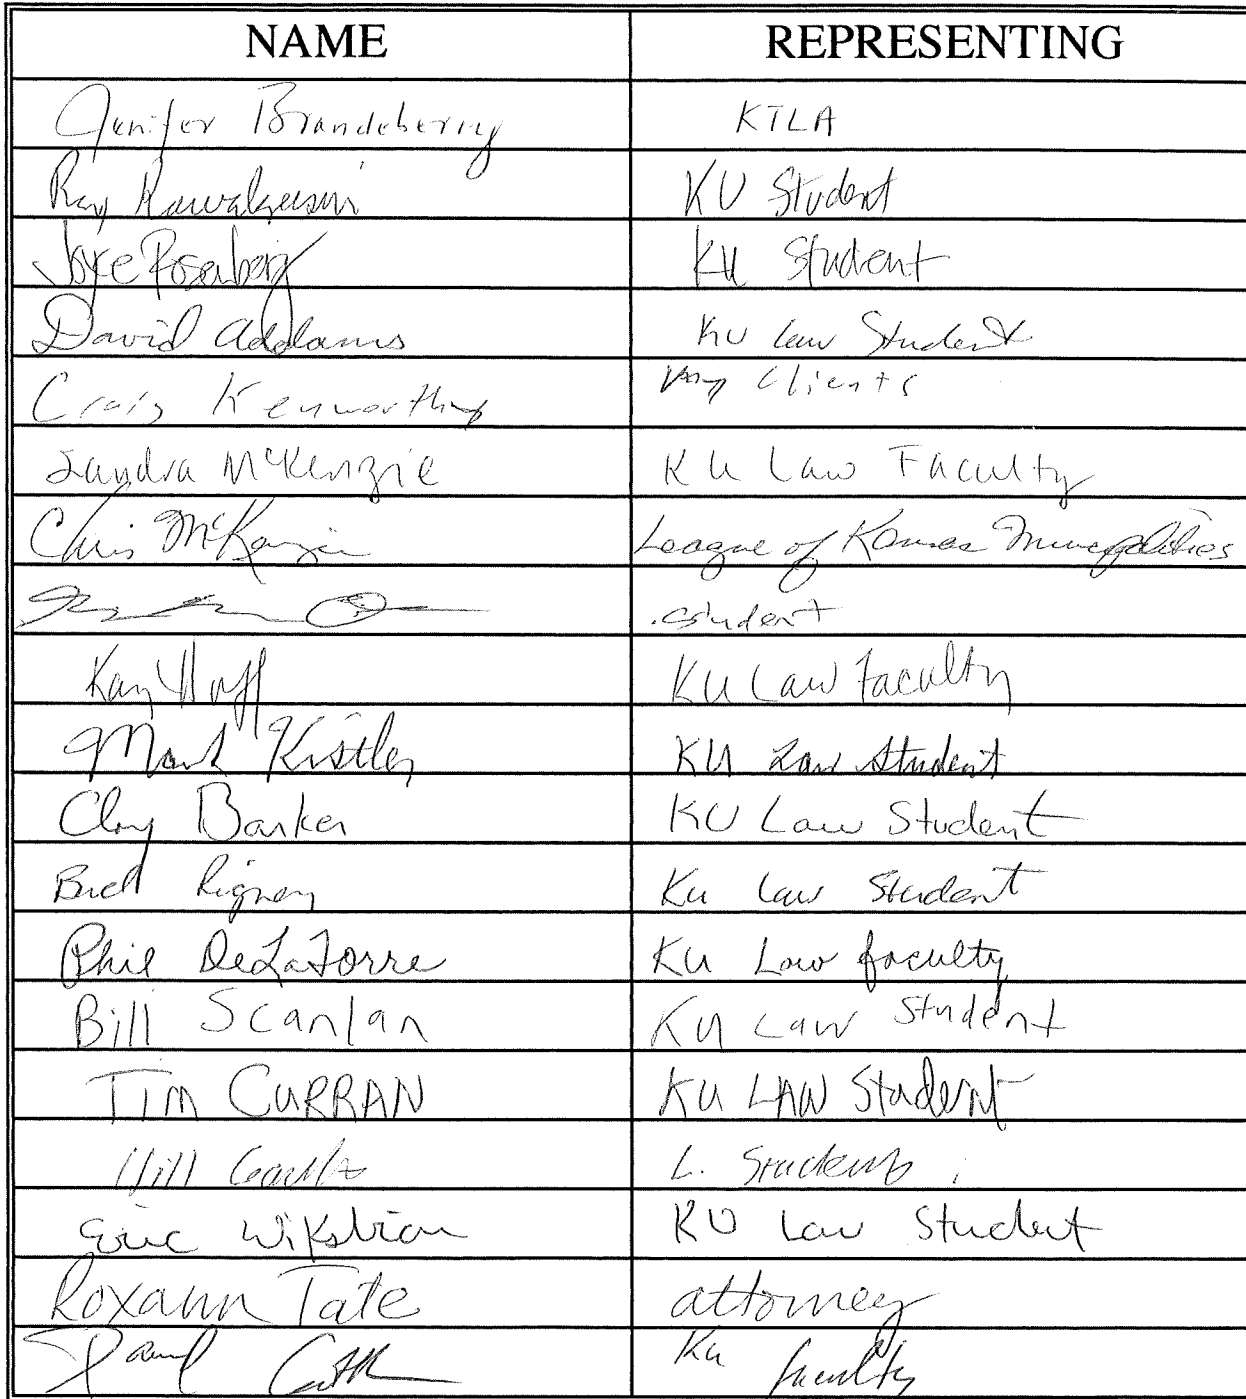 NAME REPRESENTING
Jenifer Brandeberry KTLA
Ray KU Student
Joyce Rosenberg KU Student
David Addams KU Law Student
Craig Kenworthy My Clients
Sandra McKenzie KU Law Faculty
Chris McKenzie League of Kansas Municipalities
student
Kay Huff KU Law Faculty
Mark Kistler KU Law Student
Clay Barker KU Law Student
Rigney KU Law Student
Phil DeLaTorre KU Law faculty
Bill Scanlan KU Law Student
TIM CURRAN KU LAW Student
L. Student
Eric Wikstrom KU Law Student
Roxann Tate attorney
KU faculty